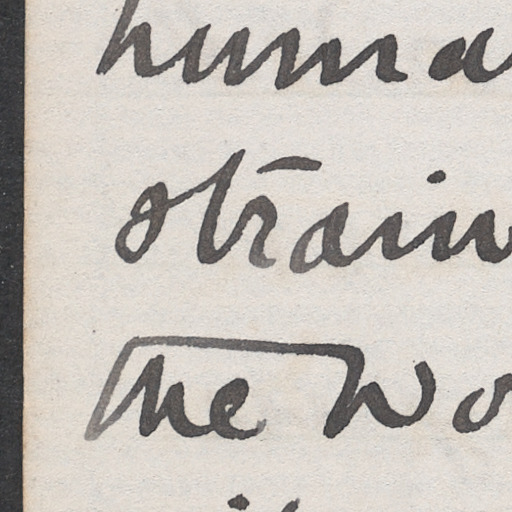 huma
strain
the wo